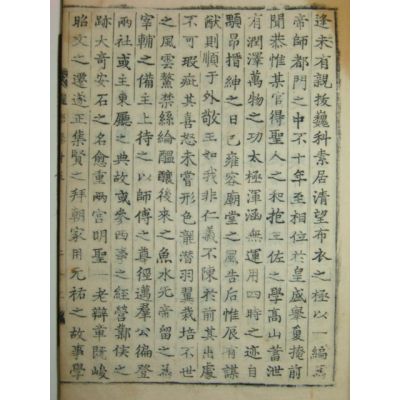 逢未有親拔巍科素居清望布衣之極以一編爲
帝師都門之中不十年至相位於皇盛擧夐掩前
聞恭惟某官得聖人之和抱王佐之學高山蓄泄
有潤澤萬物之功太極渾涵無運用四時之迹自
顒昻搢紳之日已雍容廟堂之風告后惟辰有謀
猷則順于外敬王如我非仁義不陳於前其出處
不可瑕疵其喜怒未嘗形色酖潜羽翼栽培不世
之風雲鰲禁絲綸醖釀後來之魚水元帝留之爲
宰輔之備主上待之以師傅之尊徑邁羣公徧登
兩社或主東廳之典故或參西事之經營鄴侯之
跡大奇安石之名愈重兩宫明聖一老辯章旣峻
昭文之遷遂正集賢之拜朝家用元祐之故事學